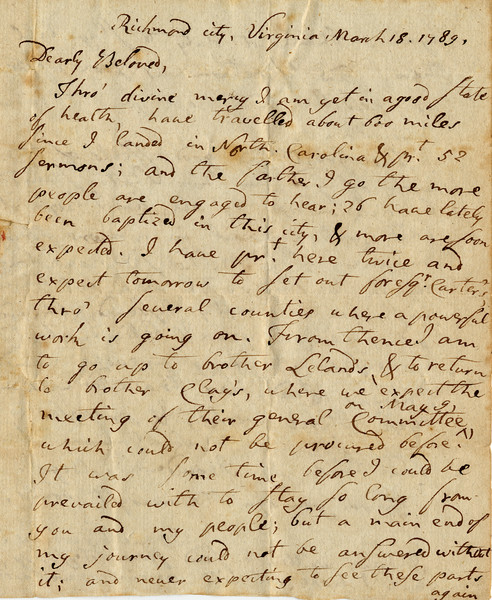 Richmond city, Virginia March 18. 1789.
Dearly Beloved,
Thro' divine mercy I am yet in a good state
of health, have travelled about 600 miles
since I landed in North Carolina & pr.t 52
sermons; and the farther I go the more
people are engaged to hear; 26 have lately
been baptized in this city, & more are soon
expected. I have pr.t here twice and
expect tomorrow to set out for Esqr. Carter's
thro' several counties where a powerful
work is going on. From thence I am
to go up to brother Leland's, & to return
to brother Clay's, where we expect the
meeting of their general Committee, on May 9,
which could not be procured before.
It was some time before I could be
prevailed with to stay so long from
you and my people; but a main end of
my journey could not be answered without
it; and never expecting to see these parts
again